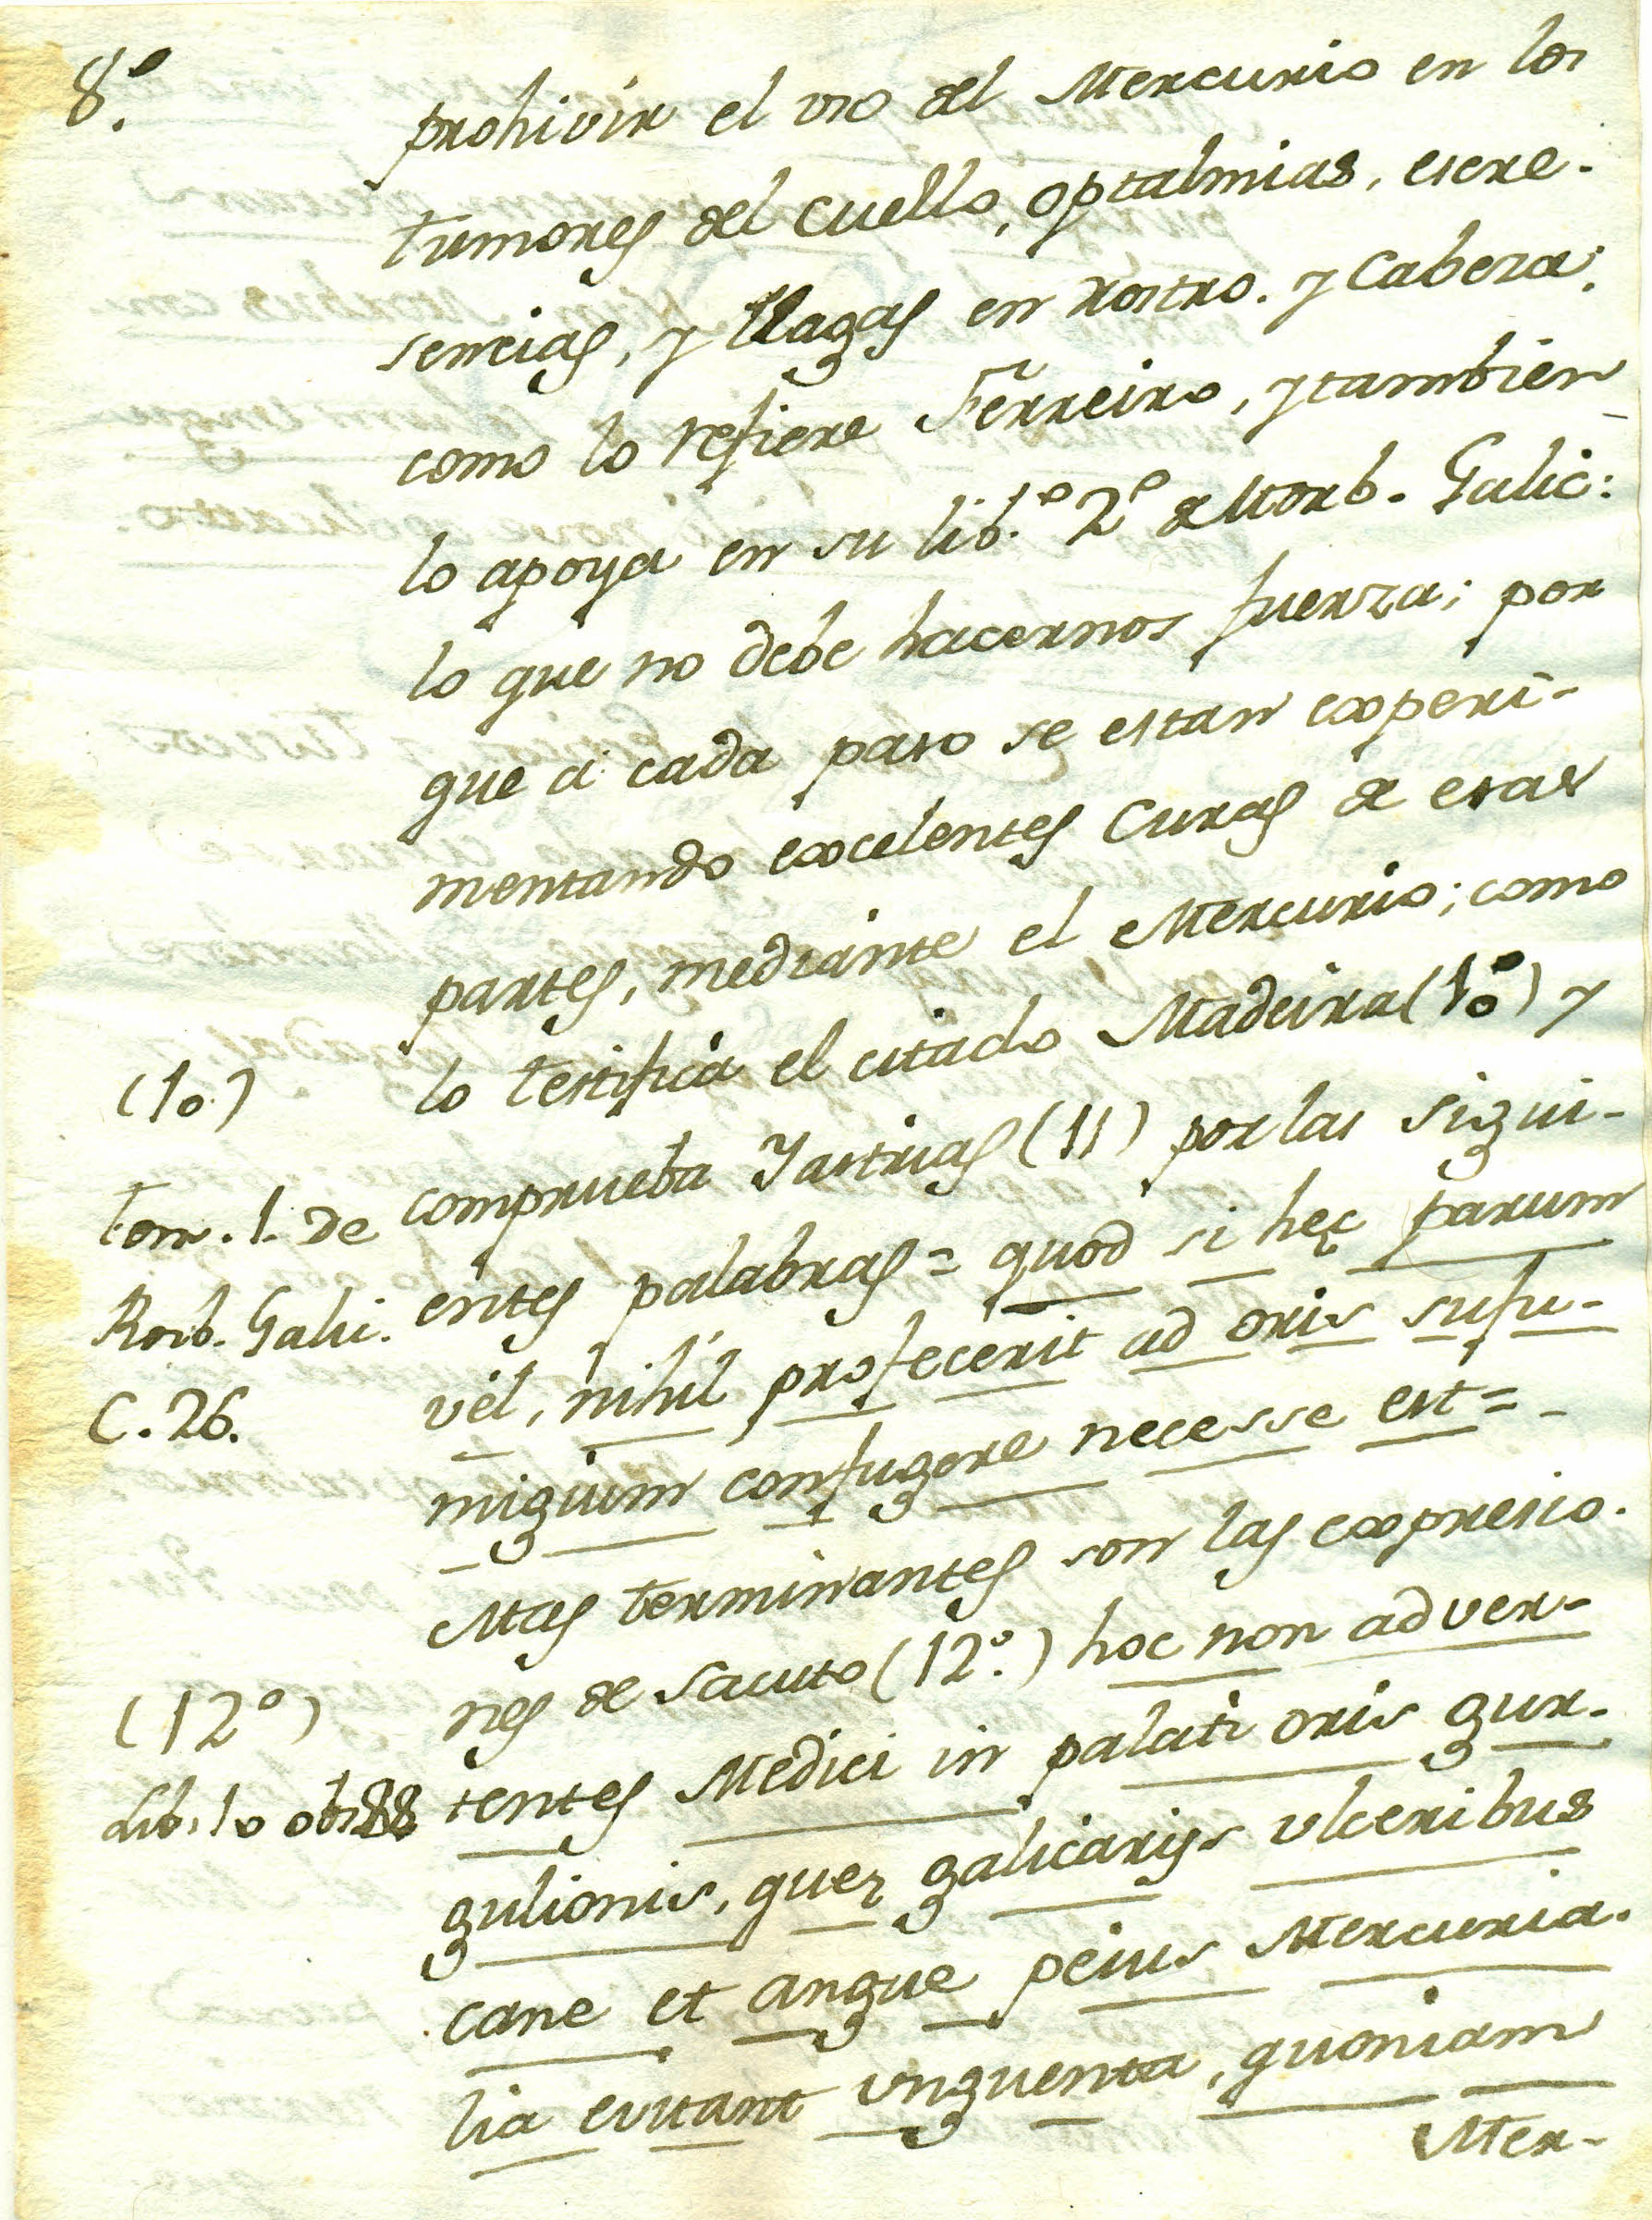 8º.
prohivir el uso del Mercurio en los
tumores del cuello, optalmias, escre-
sencias, y llagas en rostro. y Cabeza;
como lo refiere Ferreiro, y tambien
lo apoya en su lib.º 2º de Morb. Galic:
lo que no debe hacernos fuerza; por
que á cada paso se estan experi-
mentando excelentes Curas de esas
partes, mediante el Mercurio; como
lo testifica el citado Madeira (10) y
comprueba Jastrias (11) por las sigui-
entes palabras = quod si hęc parum
vel, nihil profecerit ad oris sufu-
migium confugere necesse est = -
Mas terminantes son las expresio-
nes de Sacuto (12º.) hoc non adver-
tentes Medici in palati oris gur-
gulionis, quez galicarijs ulceribus
cane et angue peius Mercuria-
lia evitant unguenta, quoniam
Mer-
(10)
tom. 1. de
Rorb. Gali.
C. 26.
(12º)
Lib. 1º obs 88